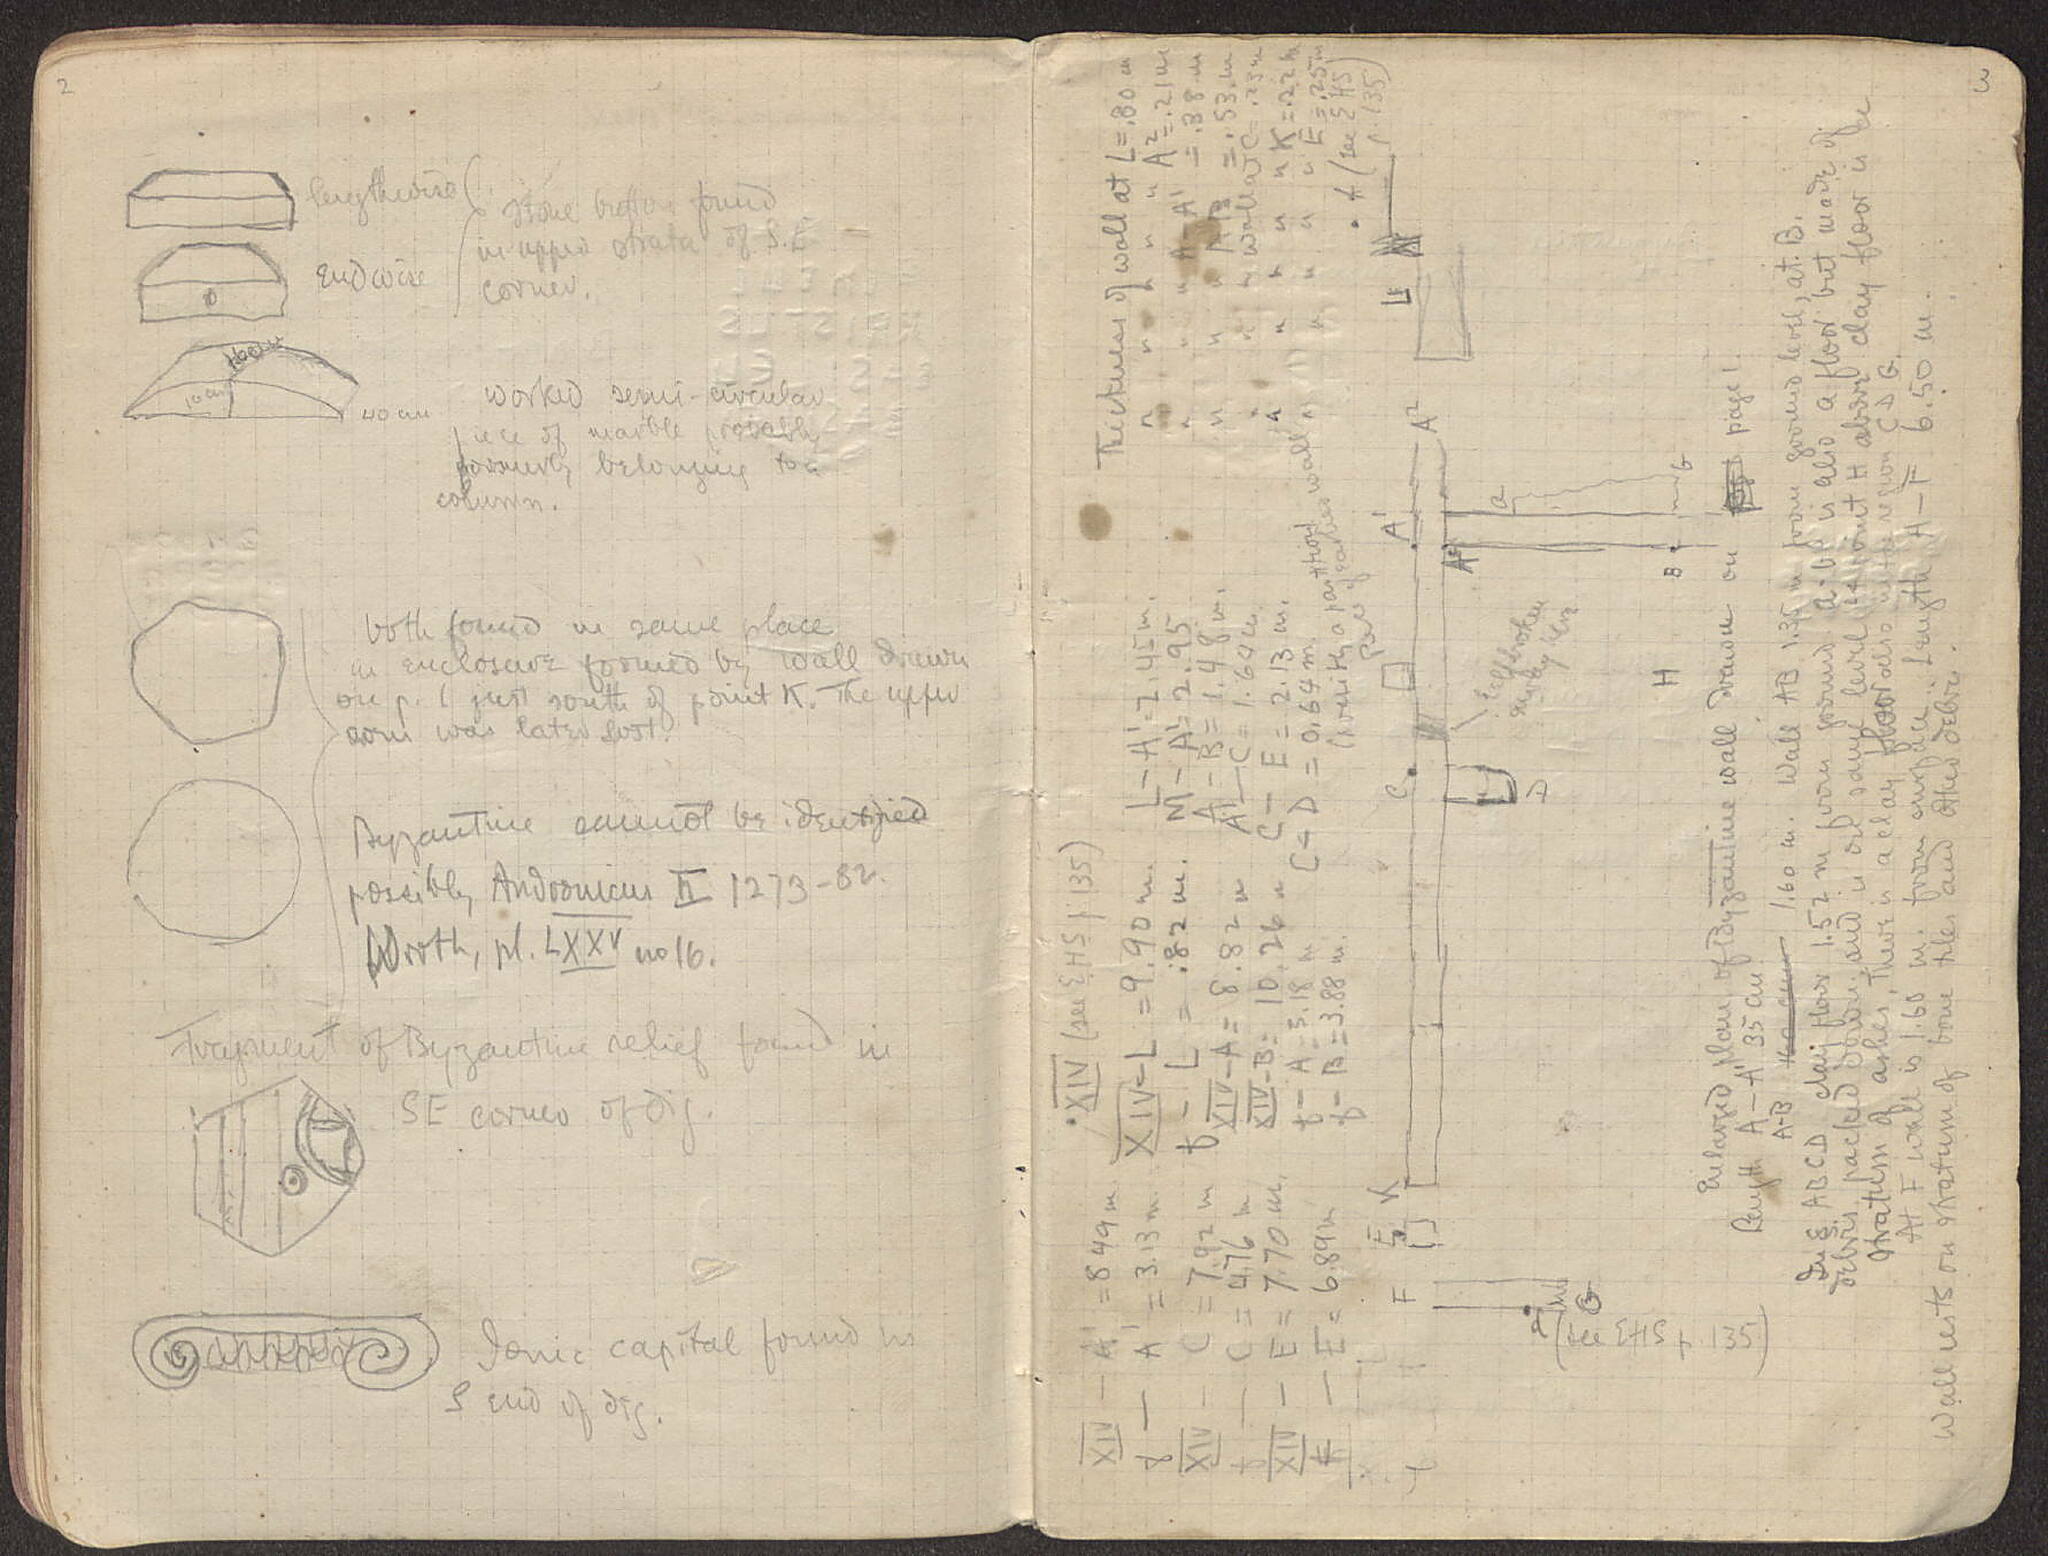 2
lengthwise
endwise
Stone button found
in upper strata of S.E
corner.
10 cm
40 cm
worked semi-circular
piece of marble probably
formerly belonging to a
column.
both found in same place
in enclosure formed by wall drawn
on p. 1 just south of point K. The upper
coin was later lost.
Byzantine cannot be identified
possibly Andronicus II 1273-82.
Wroth, pl. LXXV no 16.
Fragment of Byzantine relief found in
SE corner of dig.
Ionic capital found in
S end of dig.
3
XIV (see EHS p 135)
XIV - A' = 8.49 m
γ - A' = 3.13 m
XIV - C = 7.92 m
C = 4.76 m
XIV - E = 7.70 m.
- E = 6.89 m
XIV - L = 9.90 m.
- L = .82 m.
XIV - A = 8.82 m
XIV - B = 10.26 m
- A = 5.18 m
- B = 3.88 m.
L - A' = 2.45 m.
M - A' = 2.95
A - B = 1.48 m.
A' - C = 1.64 m
C - E = 2.13 m.
C - D = 0.64 m.
(with a partition wall
part of earlier wall)
Thickness of wall at L = .80 m
" " " " A² = .21 m
" " " A - A' = .38 m
" " " A - B = .53 m
" " " wall at C = .23 m
" " " " K = .22 m
" " " " E = .25 m
(see EHS
p. 135)
L
A²
A'
A
a
G
B
H
C
D
K
E
F
G
(see EHS p. 135)
Enlarged plan of Byzantine wall drawn on page 1.
Length A - A' 35 cm.
A-B 1.60 m. Wall AB 1.35 m from ground level, at B.
In ABCD clay floor 1.52 m from ground. a-b is also a floor but made of
debris packed down, and is on same level. At point H above clay floor is a
stratum of ashes, There is a clay floor also in the region C D G.
At F wall is 1.60 m. from surface. Length A - F 6.50 m.
Wall rests on stratum of bone tiles and other debris.